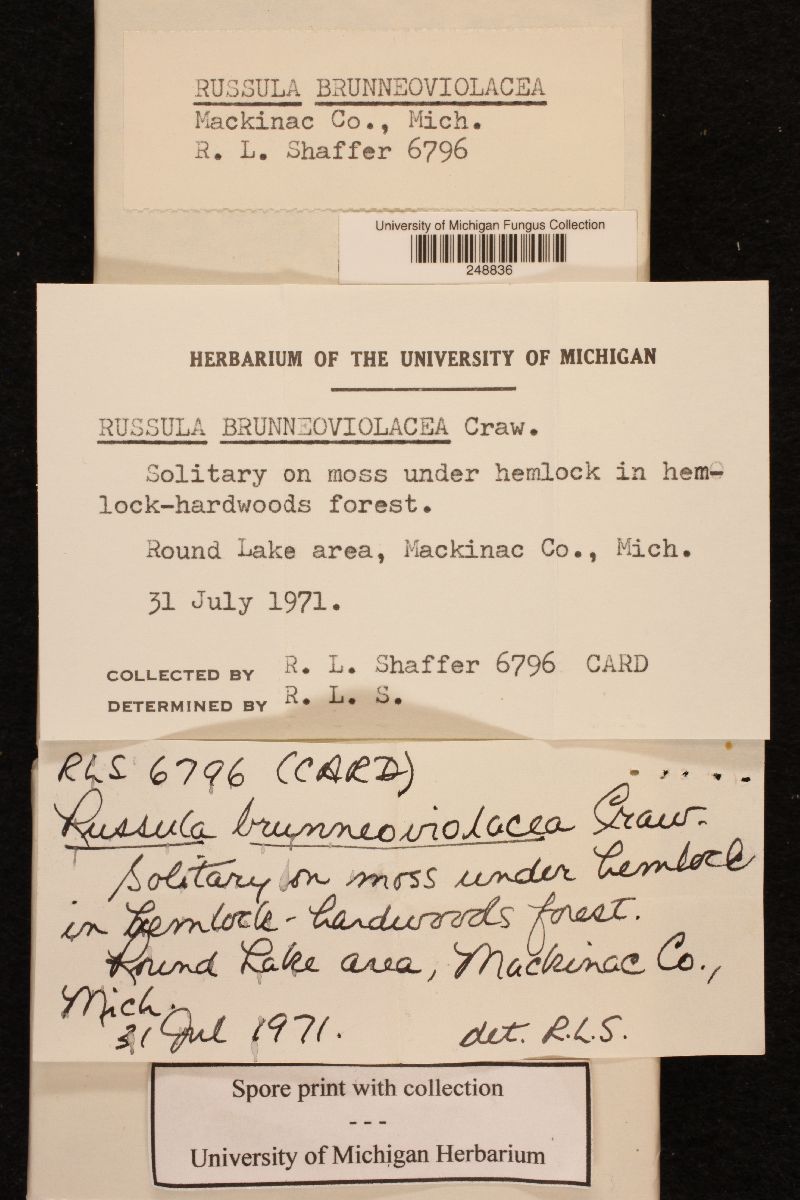 RUSSULA BRUNNEOVIOLACEA
Mackinac Co., Mich.
R. L. Shaffer 6796
University of Michigan Fungus Collection
248836
HERBARIUM OF THE UNIVERSITY OF MICHIGAN
RUSSULA BRUNNEOVIOLACEA Craw.
Solitary on moss under hemlock in hem-
lock-hardwoods forest.
Round Lake area, Mackinac Co., Mich.
31 July 1971.
COLLECTED BY R. L. Shaffer 6796 CARD
DETERMINED BY R. L. S.
RLS 6796 (CARD)
Russula brunneoviolacea Craw.
Solitary on moss under hemlock
in hemlock-hardwoods forest.
Round Lake area, Mackinac Co.,
Mich.
31 Jul 1971. det. R.L.S.
Spore print with collection
---
University of Michigan Herbarium